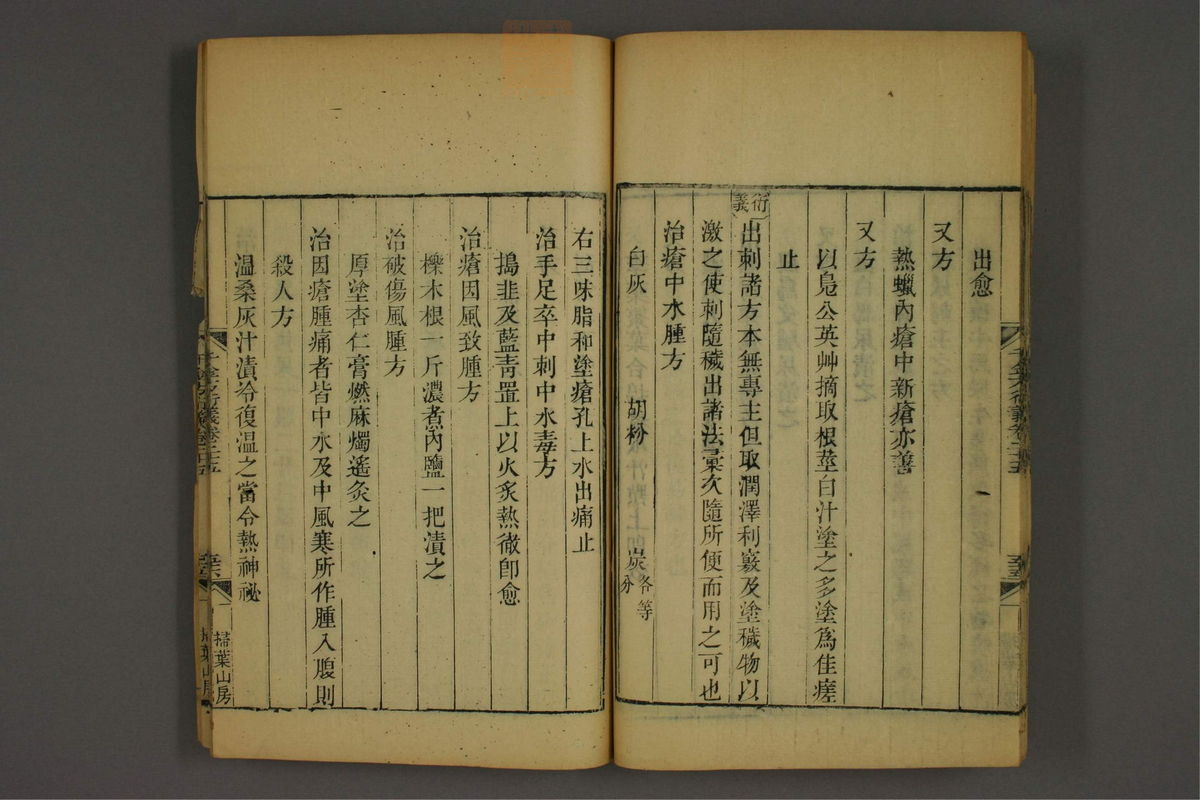 出愈
又方
熱蠟內瘡中新瘡亦善
又方
以鳧公英艸摘取根莖白汁塗之多塗爲佳瘥
止
衍義
出刺諸方本無專主但取潤澤利竅及塗穢物以
激之使刺隨穢出諸法彚次隨所便而用之可也
治瘡中水腫方
白灰 胡粉 炭各等分
右三味脂和塗瘡孔上水出痛止
治手足卒中刺中水毒方
搗韭及藍靑置上以火炙熱徹卽愈
治瘡因風致腫方
櫟木根一斤濃煮內鹽一把漬之
治破傷風腫方
厚塗杏仁膏燃麻燭遙灸之
治因瘡腫痛者皆中水及中風寒所作腫入腹則
殺人方
温桑灰汁漬冷復温之當令熱神祕
千金方衍義卷二十五
掃葉山房